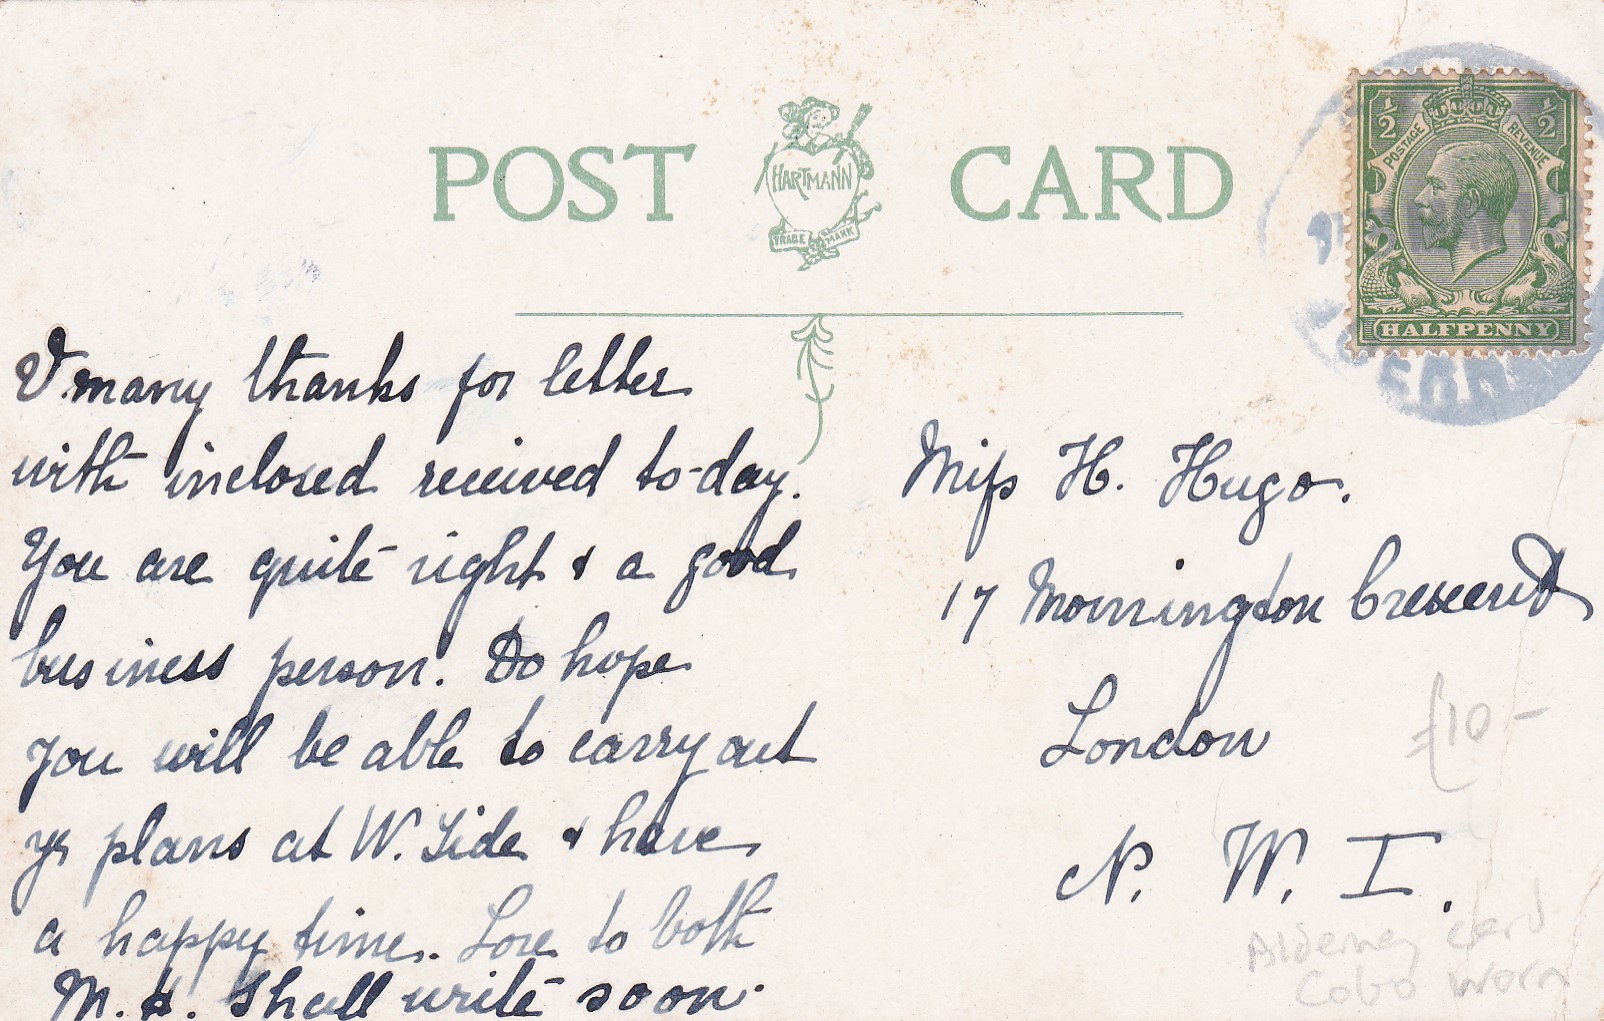 POST CARD
HARTMANN
TRADE MARK
½ ½
POSTAGE REVENUE
HALFPENNY
V. many thanks for letter
with inclosed received to-day.
You are quite right & a good
business person. Do hope
you will be able to carry out
yr plans at W. Side & have
a happy time. Love to both
M. &. Shall write soon.
Miss H. Hugo.
17 Mornington Crescent
London
N. W. I.
£10-
Alderney card
Cobo worn